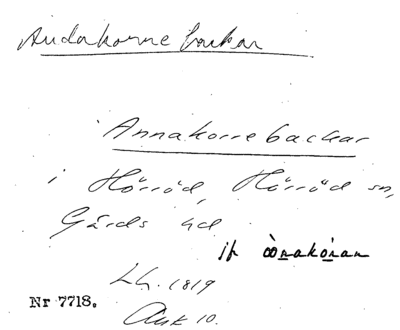 Andakorre backar
Annakorrebackar
i Hörröd, Hörröd sn,
Gärds hd
jf ò̀nakóran
Lh. 1819
Nr 7718.
Akt 10.